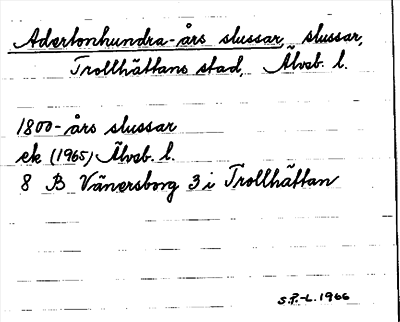 Adertonhundra-års slussar, slussar,
Trollhättans stad, Älvsb. l.
1800-års slussar
ek (1965) Älvsb. l.
8 B Vänersborg 3 i Trollhättan
S.P.-L. 1966